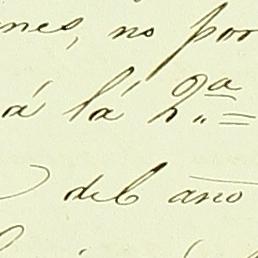 nes, no por
á lá 2,,ª =
del año